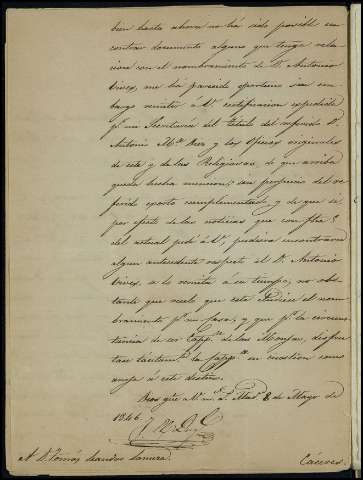 bien hasta ahora no ha sido posible en-
contrar documento alguno que tenga rela-
cion con el nombramiento de Dn. Antonio
Vives, me ha parecido oportuno sin em-
bargo remitir á V. certificacion espedida
pr. mi Secretaría del Título del referido Dn.
Antonio Ma. y los Oficios originales
de este y de las Religiosas, de que arriba
queda hecha mencion; sin perjuicio del re-
ferido exorto cumplimentado, y de que si
por efecto de las noticias que con fha. 5
del actual pide á V. pudiera encontrarse
algun antecedente respecto al Dn. Antonio
Vives, se le remita á su tiempo; no obs-
tante que recelo que este hiciese el nom-
bramiento pr. su casa; y que pr. la circuns-
tancia de ser Cappn. de las Monjas, disfru-
tase tácitamte. la Cappa. en cuestion como
aneja á este destino.
Dios gue. á V. ms. as. Mad. 8 de Mayo de
1846.
A D. Tomás
Cáceres.